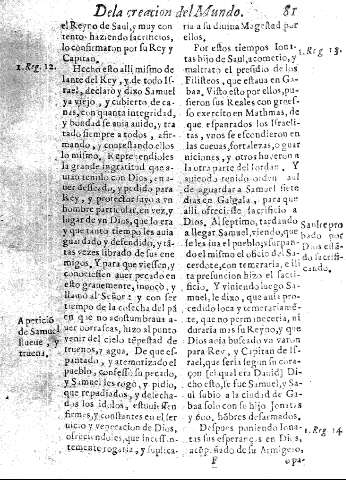 De la creacion del Mundo. 81
el Reyno de Saul, y muy con
tento haziendo sacrificios,
lo confirmaron por su Rey y
Capitan.
1. Reg. 12.
Hecho esto alli mismo de
lante del Rey, y de todo Is
rael, declarò y dixo Samuel
ya viejo, y cubierto de ca
nas, con quanta integridad,
y bondad se auia auido, y tra
tado siempre a todos, afir
mando, y contestando ellos
lo mismo, Reprehendioles
la grande ingratitud que a
uian tenido con Dios, en a
uer desseado, y pedido para
Rey, y protector suyo a vn
hombre particular, en vez, y
lugar de vn Dios, que lo era
y que tanto tiempo les auia
guardado y defendido, y tã
tas vezes librado de sus ene
migos, Y para que viessen, y
conociessen auer pecado en
esto grauemente, inuocò, y
llamò al Señor y con ser
tiempo de la cosecha del pã
A peticiõ
de Samuel
llueue, y
truena.
en que no acostumbraua a
uer borrascas, hizo al punto
venir del cielo tẽpestad de
truenos, y agua. De que es-
pantado, y atemorizado el
pueblo, confessò su pecado,
y Samuel les rogò, y pidio,
que repudiados, y desecha-
dos los idolos, estuuiessen
firmes, y constantes en el ser
uicio y veneracion de Dios,
ofreciendoles, que incessan-
temente rogaria, y suplica-
ria a su diuina Magestad por
ellos,
1. Reg 13.
Por estos tiempos Iona
tas hijo de Saul, acometio, y
maltratò el presidio de los
Filisteos, que estaua en Ga-
baa, Visto esto por ellos, pu-
sieron sus Reales con grues-
so exercito en Mathmas, de
que espantados los Israeli-
tas, vnos se escondieron en
las cueuas, fortalezas, o guar
niciones, y otros huyeron a
la otra parte del Iordan, Y
auiendo tenido orden Saul
de aguardar a Samuel siete
dias en Galgala, para que
alli ofreciesse sacrificio a
Dios, Al septimo, tardando
a llegar Samuel, viendo, que
se les iua el pueblo, vsurpan-
do el mismo el oficio del Sa-
cerdote, con temeraria, e ili
cita presuncion hizo el sacri-
ficio, Y viniendo luego Sa-
Saul repro
bado por
Dios està-
do sacrifi-
cando.
muel, le dixo, que auia pro-
cedido loca y temerariamẽ-
te, que no permaneceria, ni
duraria mas su Reyno, y que
Dios auia buscado vn varon
para Rey, y Capitan de Is-
rael, que seria segun su cora-
çon [el qual era Dauid] Di
cho esto, se fue Samuel, y Sa-
ul subio a la ciudad de Ga-
baa solo con su hijo Ionatas
y seysc. hõbres desarmados.
1. Reg 14
Despues poniendo Iona-
tas sus esperanças en Dios,
acõpañado de su Armigero,
F
o pa-